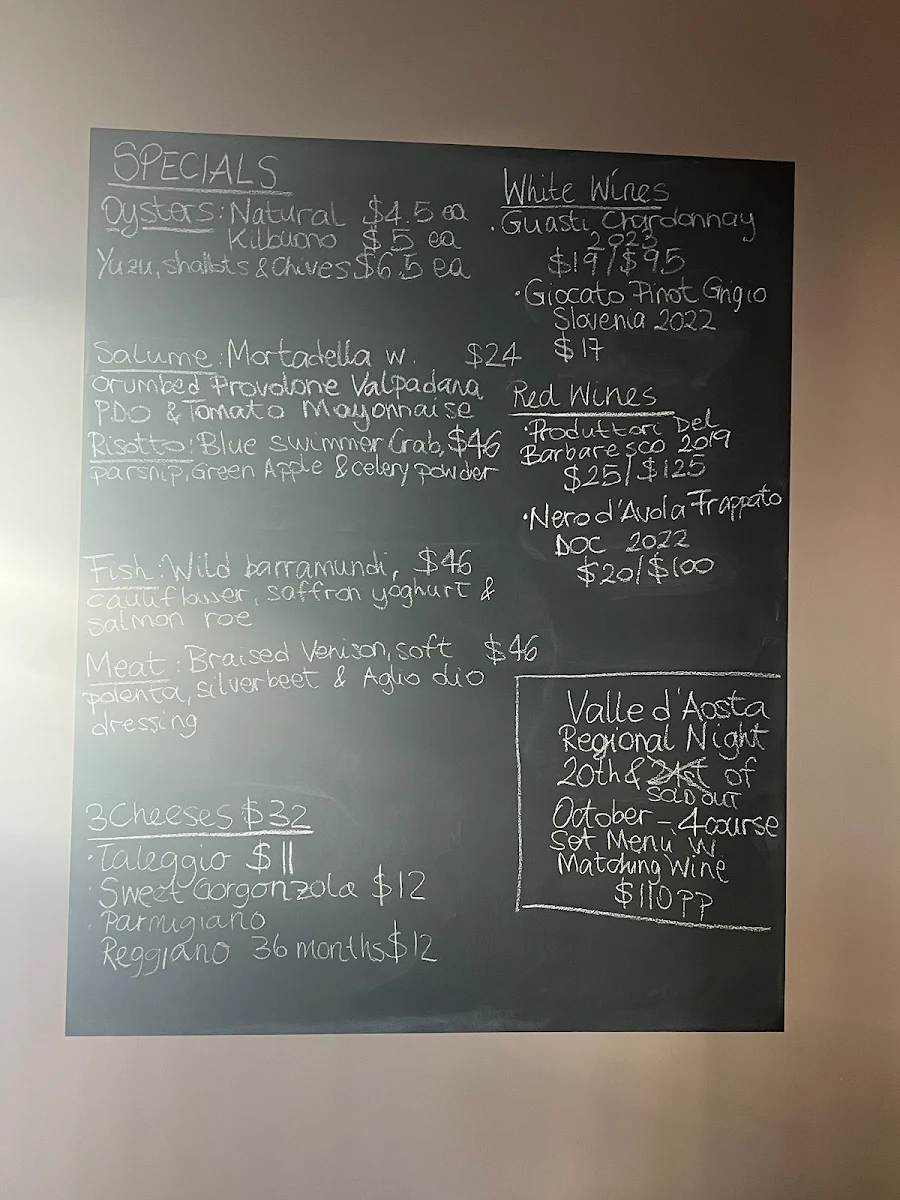 SPECIALS
Oysters: Natural $4.5 ea
Kilbuono $5 ea
Yuzu, shallots & Chives $6.5 ea
Salume: Mortadella w. $24
crumbed Provolone Valpadana
PDO & Tomato Mayonnaise
Risotto: Blue swimmer Crab, $46
parsnip, Green Apple & celery powder
Fish: Wild barramundi, $46
cauliflower, saffron yoghurt &
salmon roe
Meat: Braised Venison, soft $46
polenta, silverbeet & Aglio olio
dressing
3 Cheeses $32
· Taleggio $11
· Sweet Gorgonzola $12
· Parmigiano
Reggiano 36 months $12
White Wines
· Guasti Chardonnay
2023
$19/$95
· Giocato Pinot Grigio
Slovenia 2022
$17
Red Wines
· Produttori Del
Barbaresco 2019
$25/$125
· Nero d'Avola Frappato
DOC 2022
$20/$100
Valle d'Aosta
Regional Night
20th & 21st of
SOLD OUT
October - 4 course
Set Menu W
Matching Wine
$110 PP